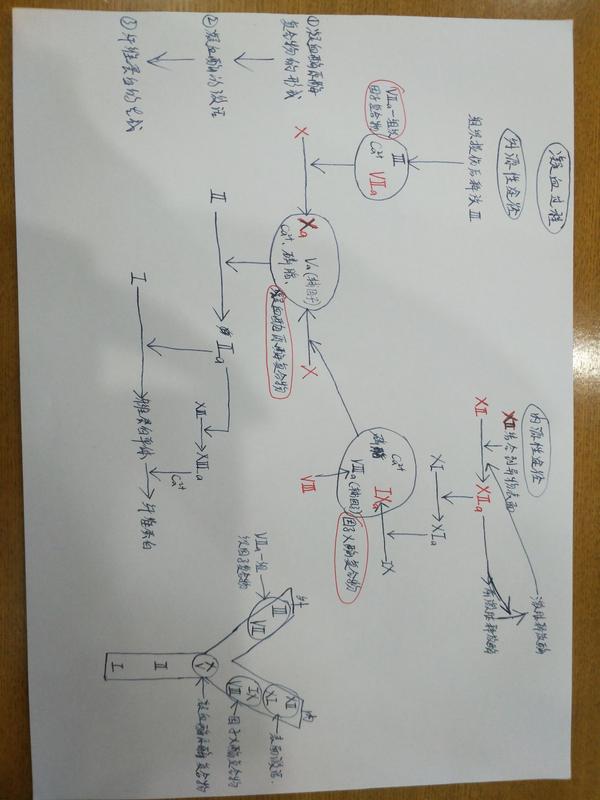 凝血过程
外源性途径
组织损伤后释放Ⅲ
Ⅶa-组织
因子复合物
Ⅲ
Ca²⁺ Ⅶa
X
Xa
Va(辅因子)
Ca²⁺、磷脂、
凝血酶原酶复合物
X
①凝血酶原酶
复合物的形成
②凝血酶的激活
③纤维蛋白的生成
Ⅱ
Ⅱa
Ⅰ
纤维蛋白单体
Ca²⁺
纤维蛋白
XⅢ
XⅢa
内源性途径
XⅡ结合到异物表面
XⅡ
XⅡa
激肽释放酶
前激肽释放酶
XⅠ
XⅠa
Ⅸ
Ca²⁺
Ⅸa
磷脂
Ⅷa(辅因子)
Ⅷ
因子X酶复合物
外
内
Ⅲ
Ⅶ
Ⅶa-组
织因子复合物
XⅡ
XⅠ
表面激活
Ⅸ
Ⅷ
因子X酶复合物
X
Ⅴ
凝血酶原酶复合物
Ⅱ
Ⅰ